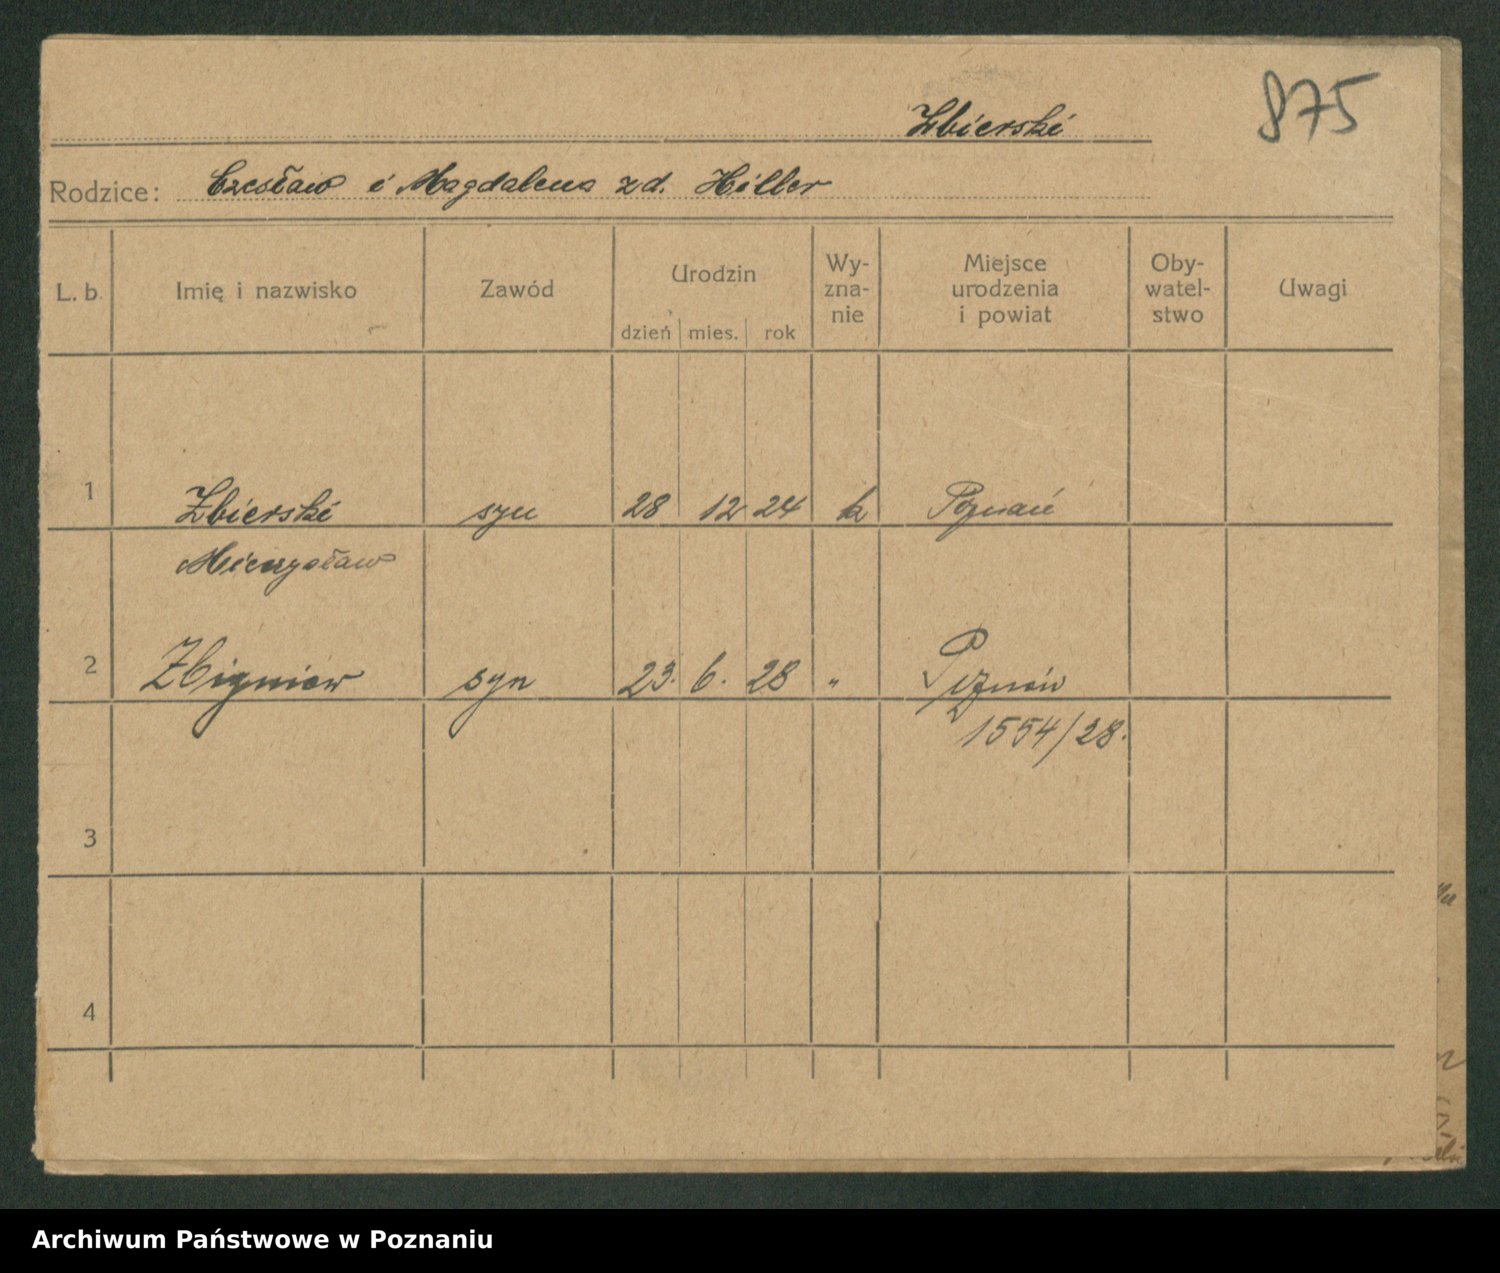 875
Zbierski
Rodzice: Czesław i Magdalena zd. Hiller
L. b. Imię i nazwisko Zawód Urodzin dzień mies. rok Wy-zna-nie Miejsce urodzenia i powiat Oby-watel-stwo Uwagi
1 Zbierski syn 28 12 24 k Poznań
Mieczysław
2 Zbigniew syn 23. 6. 28 " Poznań
1554/28.
3
4
Archiwum Państwowe w Poznaniu